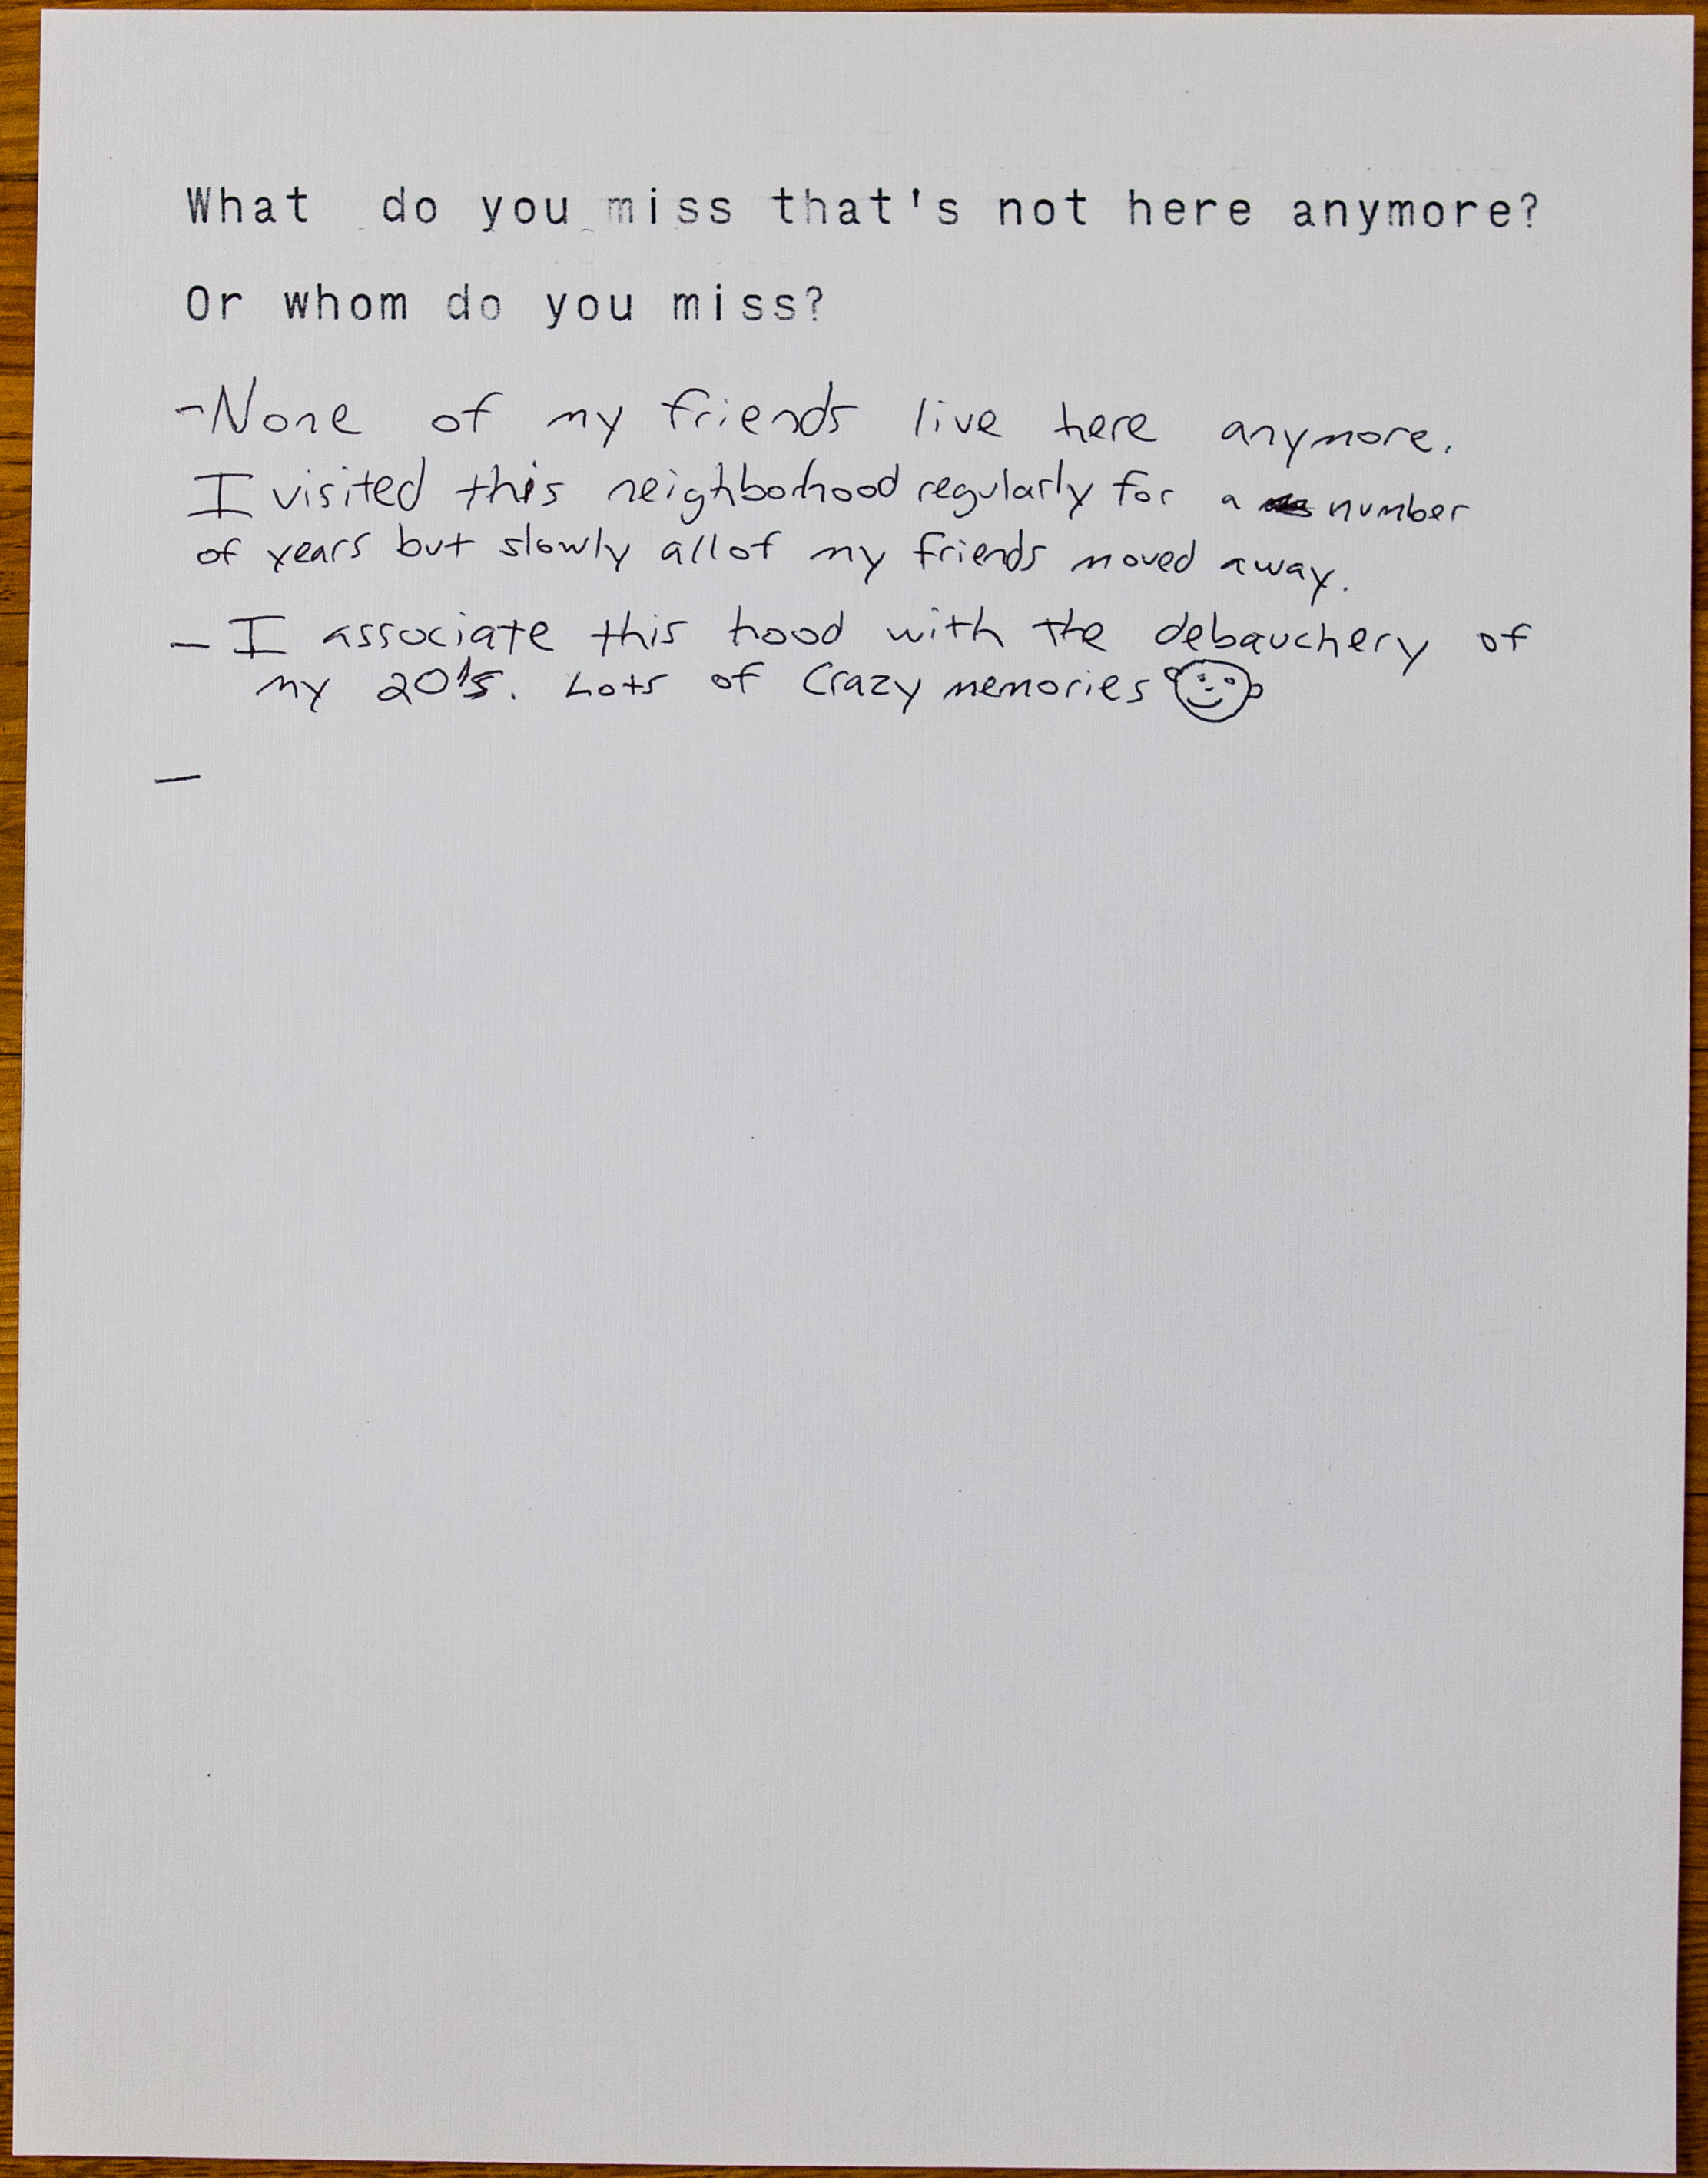 What do you miss that's not here anymore?
Or whom do you miss?
-None of my friends live here anymore.
I visited this neighborhood regularly for a number
of years but slowly all of my friends moved away.
- I associate this hood with the debauchery of
my 20's. Lots of Crazy memories
-